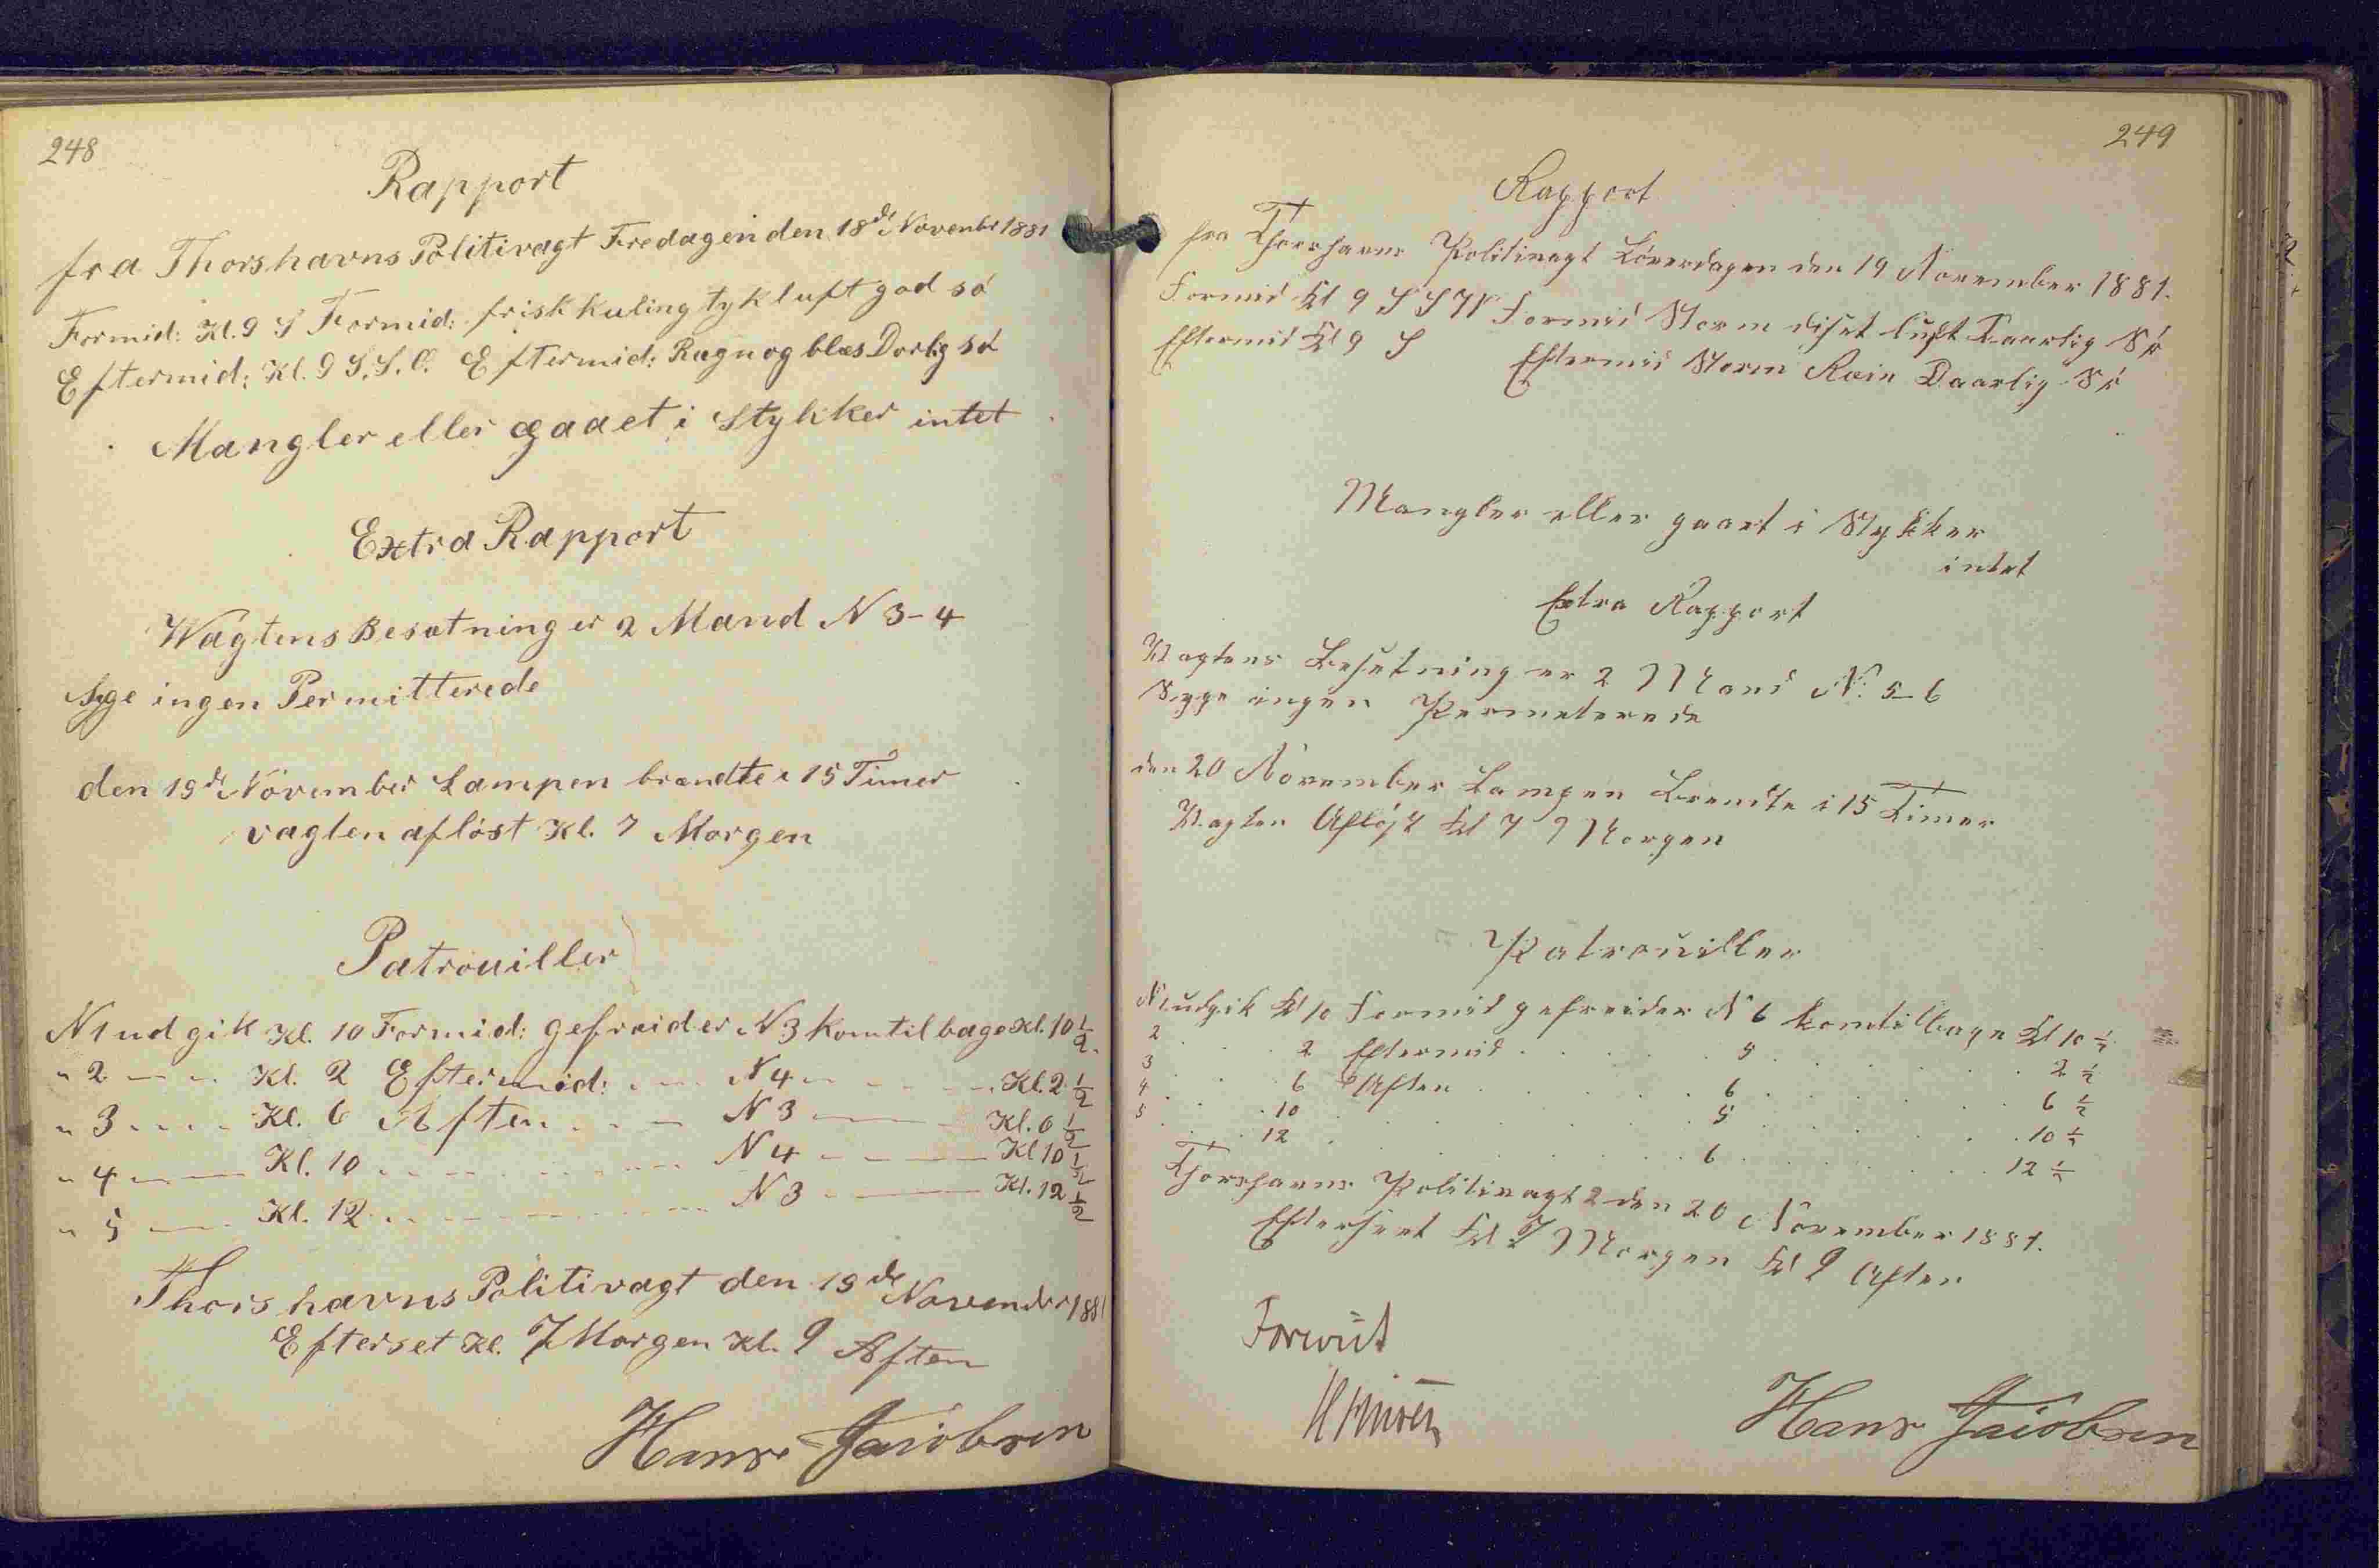 248
Rapport
fra Thorshavns Politivagt Fredagen den 18de Novenbr 1881
Formid: Kl. 9 S Formid: frisk kuling tyk luft god sö
Eftermid: Kl. 9 S.S.O. Eftermid: Ragn og blæs Dorlig sö
Mangler eller gaaet i Stykker intet
Extra Rapport
Wagtens Besætning er 2 Mand N 3-4
Syge ingen Permitterede
den 19de November Lampen brændte i 15 Timer
vagten aflöst Kl. 7 Morgen
Patrouiller
N 1 udgik Kl. 10 Formid: gefreider N 3 kom tilbage Kl. 10 1/2.
" 2 Kl. 2 Eftermid: N 4 Kl. 2 1/2
" 3 Kl. 6 Aften N 3 Kl. 6 1/2
" 4 Kl. 10 N 4 Kl 10 1/2
" 5 Kl. 12 N 3 Kl. 12 1/2
Thorshavns Politivagt den 19de November 1881
Efterset Kl. 7 Morgen Kl. 9 Aften
Hans Jacobsen
249
Rapport
fra Thorshavns Politivagt Löverdagen den 19 November 1881.
Formid Kl 9 S S W Formid Storm diset luft Daarlig Sö
Eftermid Kl 9 S Eftermid Storm Rein Daarlig Sö
Mangler eller gaaet i Stykker
intet
Extra Rapport
Wagtens Besetning er 2 Mand N. 5-6
Syge ingen Permeterede
den 20 November Lampen Brendte i 15 Timer
Wagten Aflöst Kl 7 Morgen
Patrouiller
N 1 udgik Kl 10 Formid gefreider N 6 kom tilbage Kl 10 1/2
2 2 Eftermid 5 2 1/2
3 6 Aften 6 6 1/2
4 10 5 10 1/2
5 12 6 12 1/2
Thorshavns Politivagt den 20 November 1881.
Efterseet Kl 7 Morgen Kl 9 Aften
Forevist
Hans Jacobsen